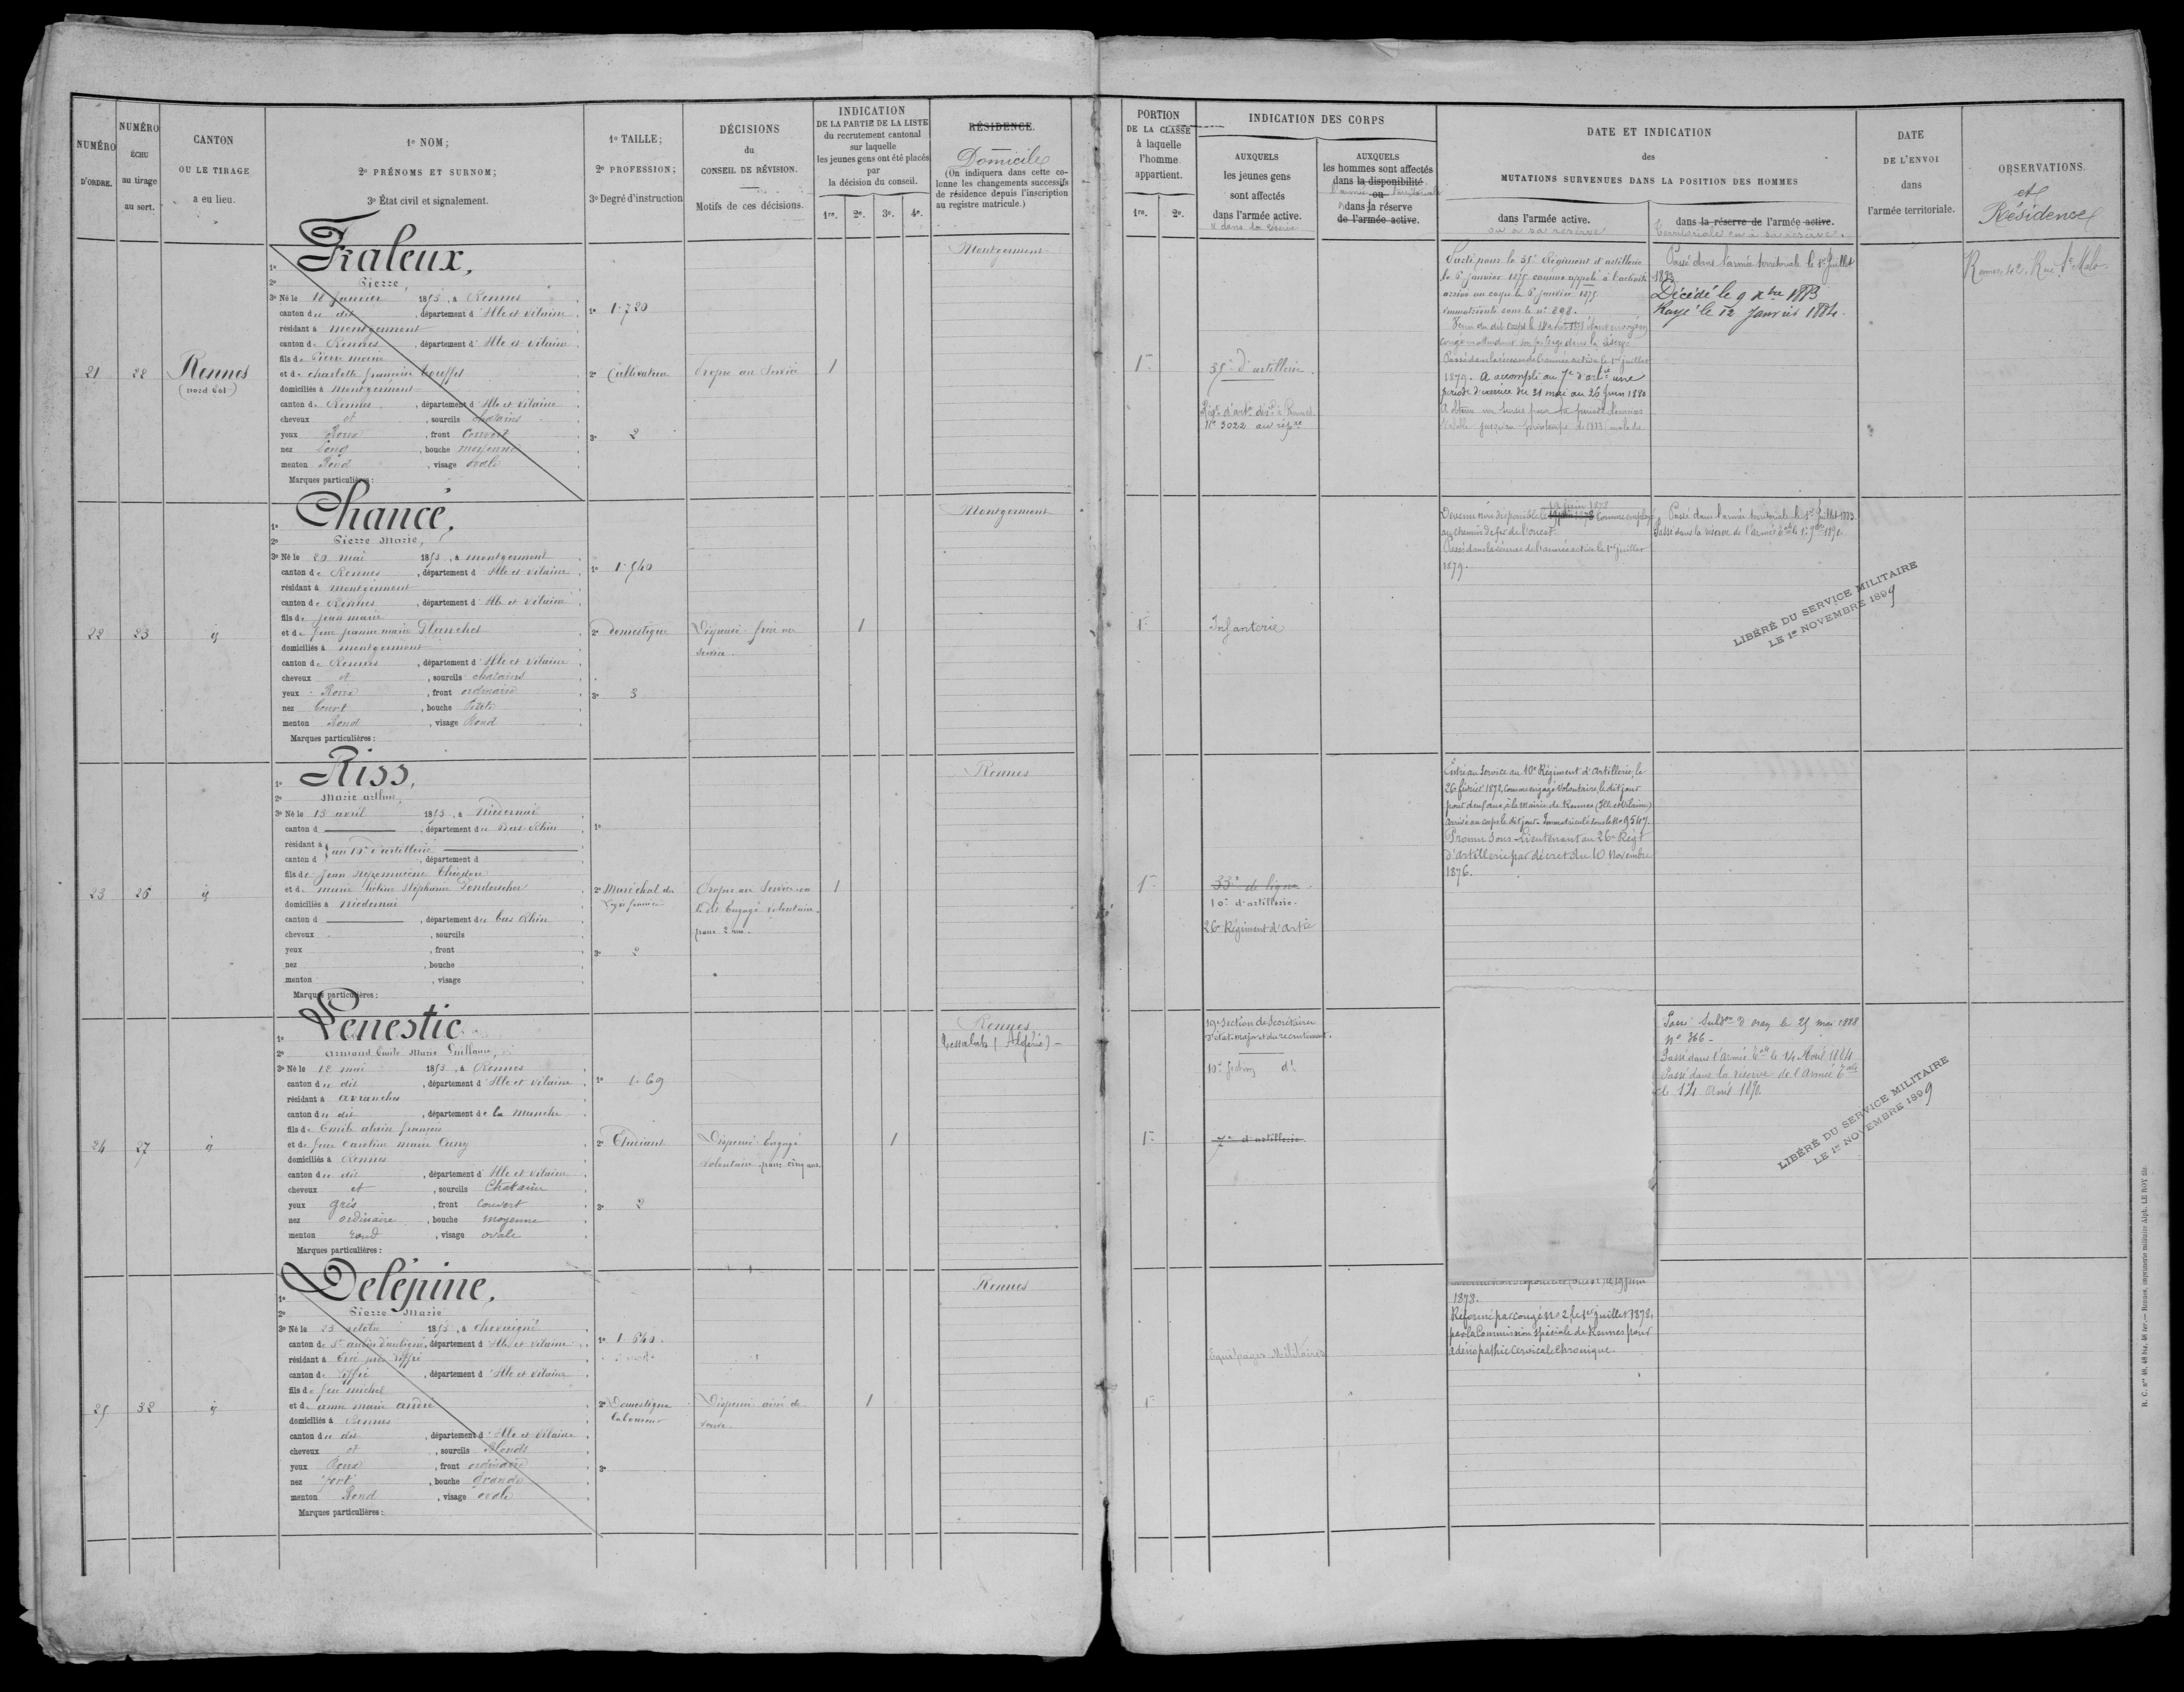 NUMÉRO D'ORDRE.
NUMÉRO ÉCHU au tirage au sort.
CANTON OU LE TIRAGE a eu lieu.
1º NOM;
2º PRÉNOMS ET SURNOM;
3º État civil et signalement.
1º TAILLE;
2º PROFESSION;
3º Degré d'instruction
DÉCISIONS
du
CONSEIL DE RÉVISION.
Motifs de ces décisions.
INDICATION
DE LA PARTIE DE LA LISTE
du recrutement cantonal
sur laquelle
les jeunes gens ont été placés
par
la décision du conseil.
1re. 2e. 3e. 4e.
RÉSIDENCE.
Domicile
(On indiquera dans cette co-
lonne les changements successifs
de résidence depuis l'inscription
au registre matricule.)
PORTION
DE LA CLASSE
à laquelle
l'homme
appartient.
1re. 2e.
INDICATION DES CORPS
AUXQUELS
les jeunes gens
sont affectés
dans l'armée active.
AUXQUELS
les hommes sont affectés
dans la disponibilité
ou
dans la réserve
de l'armée active.
DATE ET INDICATION
des
MUTATIONS SURVENUES DANS LA POSITION DES HOMMES
dans l'armée active.
ou à sa réserve
dans la réserve de l'armée active.
territoriale ou à sa réserve.
DATE
DE L'ENVOI
dans
l'armée territoriale.
OBSERVATIONS.
et
Résidence
21
22
Rennes
(nord est)
1º Fraleux,
2º Pierre,
3º Né le 18 janvier 1853, à Rennes
canton du dit, département d'Ille et Vilaine
résidant à montgermont
canton de Rennes, département d'Ille et Vilaine
fils de Pierre marie
et de charlotte françoise
domiciliés à Montgermont
canton de Rennes, département d'Ille et Vilaine
cheveux et, sourcils chatains
yeux Roux, front Couvert
nez Long, bouche moyenne
menton Rond, visage ovale
Marques particulières:
1º 1.720
2º Cultivateur
3º 2
Propre au Service
1
Montgermont
1re
35e d'artillerie
Nº 3022 au rép.re
Parti pour le 35e Régiment d'artillerie
le 6 janvier 1875 comme appelé à l'activité
arrivé au corps le 6 janvier 1875
immatriculé sous le nº 898.
Passé dans la réserve de l'armée active le 1er juillet
1879. A accompli au 7e d'art.ie une
période d'exercice du 31 mai au 26 Juin 1880
Passé dans l'armée territoriale le 1er Juillet
1883.
Décédé le 9 xbre 1883
Rayé le 12 Janvier 1884.
Rennes 42. Rue St Malo
22
23
id
1º Chancé,
2º Pierre Marie,
3º Né le 20 mai 1853, à montgermont
canton de Rennes, département d'Ille et Vilaine
résidant à montgermont
canton de Rennes, département d'Ille et Vilaine
fils de jean marie
et de feue jeanne marie Blanchet
domiciliés à montgermont
canton de Rennes, département d'Ille et Vilaine
cheveux et, sourcils chatains
yeux Roux, front ordinaire
nez Court, bouche Petite
menton Rond, visage Rond
Marques particulières:
1º 1.540
2º domestique
3º 3
Dispensé frère au
service
1
Montgermont
1re
Infanterie
19 juin 1878
comme employé
au chemin de fer de l'ouest.
Passé dans la réserve de l'armée active le 1er juillet
1879.
Passé dans l'armée territoriale le 1er Juillet 1883.
Passé dans la réserve de l'armée
LIBÉRÉ DU SERVICE MILITAIRE
LE 1er NOVEMBRE 1899
23
26
id
1º Riss,
2º Marie arthur,
3º Né le 13 avril 1853, à Niedernai
canton d, département du Bas Rhin
résidant à au 10e d'artillerie
canton d, département d
fils de Jean Népomucène Théodore
et de marie
domiciliés à Niedernai
canton d, département du bas Rhin
cheveux, sourcils
yeux, front
nez, bouche
menton, visage
Marques particulières:
1º
2º Maréchal des
Logis fourrier
3º 2
Propre au Service
le dit Engagé volontaire
pour 2 ans.
1
Rennes
1re
33e de ligne
10e d'artillerie.
26e Régiment d'art.ie
Entré au service au 10e Régiment d'Artillerie, le
26 février 1872, comme engagé volontaire, le dit jour
pour deux ans, à la Mairie de Rennes (Ille et Vilaine)
arrivé au corps le dit jour. Immatriculé sous le Nº 9547.
Promu Sous-Lieutenant au 26e Régt
d'Artillerie par décret du 10 Novembre
1876.
24
27
id
1º Lenestic
2º Armand Emile Marie Guillaume,
3º Né le 12 mai 1853, à Rennes
canton du dit, département d'Ille et Vilaine
résidant à avranches
canton du dit, département de la Manche
fils de Emile alain françois
et de feue Caroline marie Cuny
domiciliés à Rennes
canton du dit, département d'Ille et Vilaine
cheveux et, sourcils Chatains
yeux gris, front Couvert
nez ordinaire, bouche moyenne
menton rond, visage ovale
Marques particulières:
1º 1.69
2º Etudiant
3º 2
Dispensé Engagé
volontaire pour cinq ans.
1
Rennes
Tessalah (Algérie)
1re
19e Section de Secrétaires
d'état-major et du recrutement.
10e Section dt
7e d'artillerie.
Passé Subd.on d'Oran le 25 mai 1888
Nº 366
Passé dans l'Armée t.ale le 14 Avril 1884
Passé dans la réserve de l'Armée t.ale
le 14 Avril 1890.
LIBÉRÉ DU SERVICE MILITAIRE
LE 1er NOVEMBRE 1899
25
32
id
1º Delépine,
2º Pierre Marie
3º Né le 23 octobre 1853, à chevaigné
canton de St aubin d'aubigné, département d'Ille et Vilaine
résidant à Ercé près Liffré
canton de Liffré, département d'Ille et Vilaine
fils de feu michel
et de anne marie andré
domiciliés à Rennes
canton du dit, département d'Ille et Vilaine
cheveux et, sourcils Blonds
yeux Roux, front ordinaire
nez fort, bouche Grande
menton Rond, visage ovale
Marques particulières:
1º 1.640.
2º Domestique
laboureur
3º
Dispensé ainé de
veuve
1
Rennes
1re
Equipages Militaires
le 19 Juin
1878.
Réformé par congé Nº 2 le 1er juillet 1878,
par la Commission spéciale de Rennes pour
adénopathie cervicale chronique.
R. C. nos 48, 48 bis, 48 ter.— Rennes, imprimerie militaire Alph. LE ROY fils.